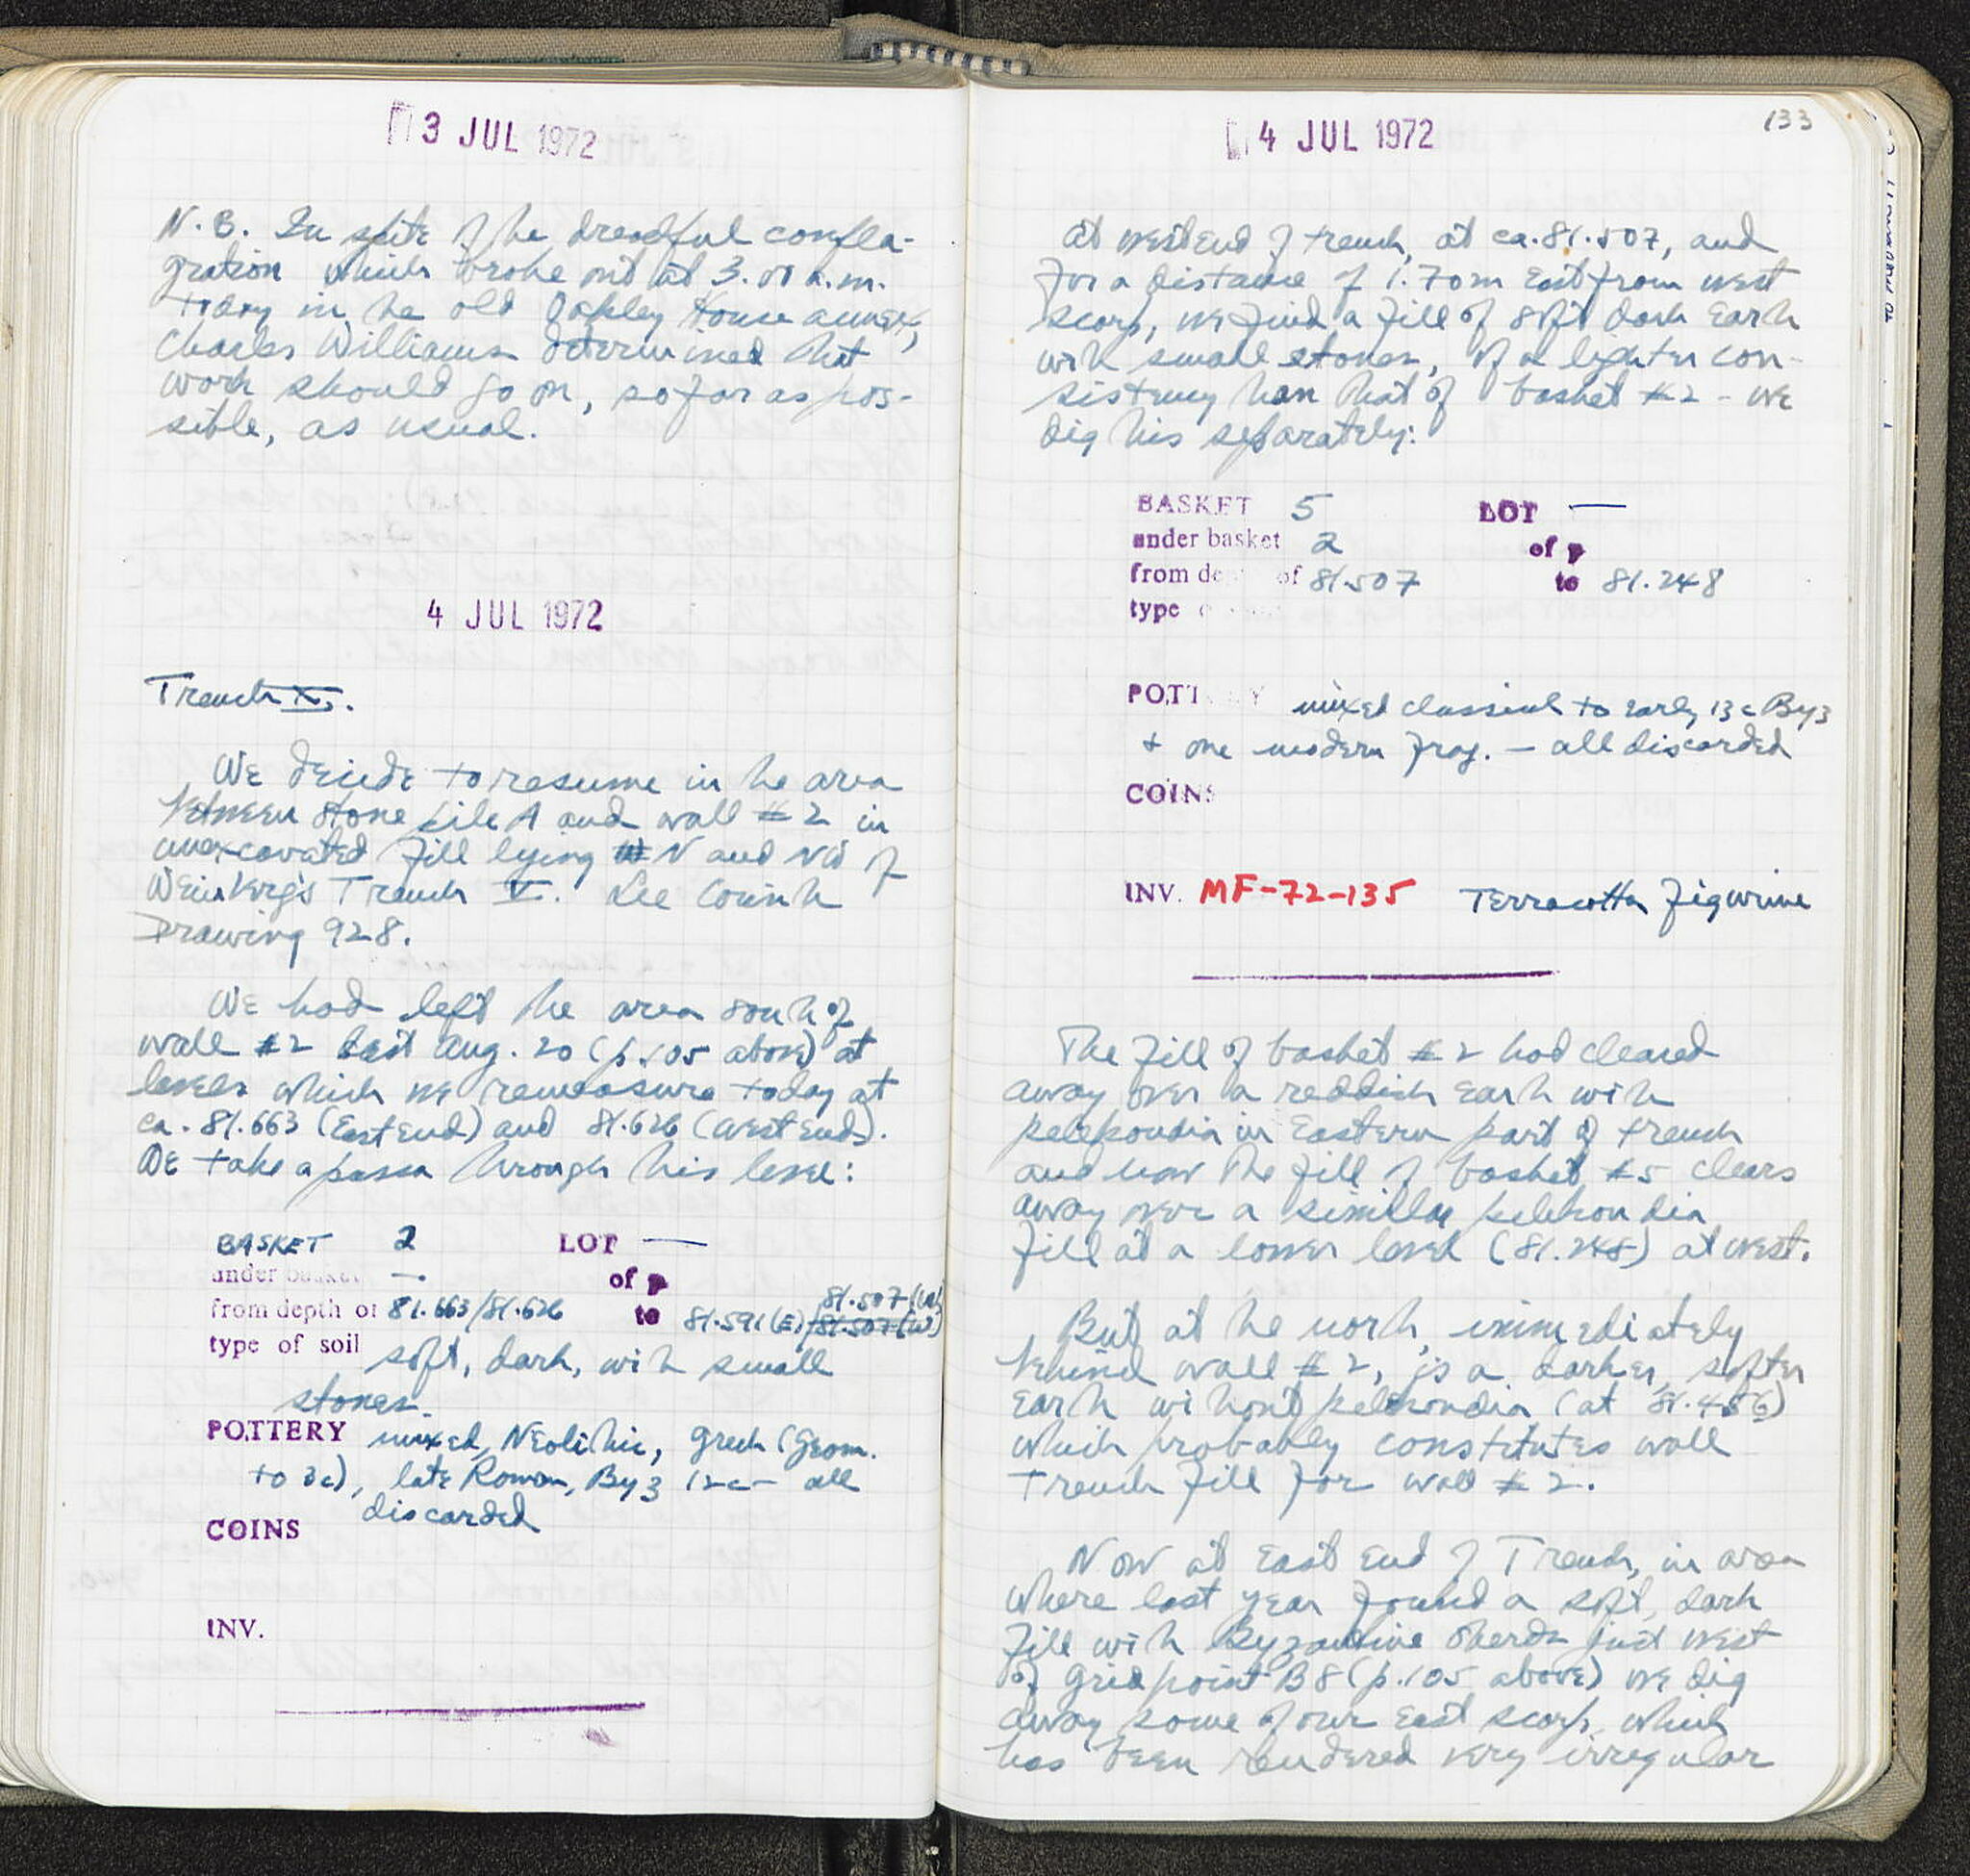 3 JUL 1972
N.B. In spite of the dreadful confla-
gration which broke out at 3.00 a.m.
today in the old Oakley House annex,
Charles Williams determined that
work should go on, so far as pos-
sible, as usual.
4 JUL 1972
Trench X.
We decide to resume in the area
between stone pile A and wall #2 in
unexcavated fill lying N and NW of
Weinberg's Trench V. See Corinth
Drawing 928.
We had left the area south of
wall #2 last Aug. 20 (p.105 above) at
levels which we remeasure today at
ca. 81.663 (East end) and 81.626 (West end).
We take a passa through this level:
BASKET 2 LOT —
under basket —
of p
from depth of 81.663/81.626 to 81.591(E) 81.507(W)
81.507(W)
type of soil soft, dark, with small
stones.
POTTERY mixed, Neolithic, Greek (Geom.
to 3c), late Roman, Byz 12c — all
discarded
COINS
INV.
4 JUL 1972
133
at west end of trench, at ca. 81.507, and
for a distance of 1.70m East from west
scarp, we find a fill of soft dark earth
with small stones, of a lighter con-
sistency than that of basket #2 - we
dig this separately:
BASKET 5 LOT —
under basket 2 of p
from depth of 81.507 to 81.248
type
POTTERY mixed classical to early 13c Byz
+ one modern frag. — all discarded
COINS
INV. MF-72-135 Terracotta figurine
The fill of basket #2 had cleared
away over a reddish earth with
pelekoudia in Eastern part of trench
and now the fill of basket #5 clears
away over a similar pelekoudia
fill at a lower level (81.248) at west.
But at the north, immediately
behind wall #2, is a darker, softer
earth without pelekoudia (at 81.456)
which probably constitutes wall
trench fill for wall #2.
Now at East end of Trench, in area
where last year found a soft, dark
fill with Byzantine sherds just west
of grid point B8 (p.105 above) we dig
away some of our East scarp, which
has been rendered very irregular